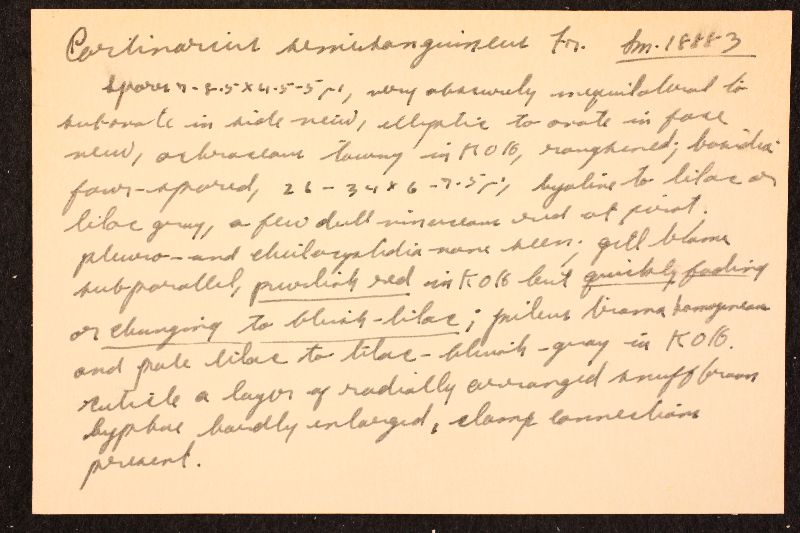 Cortinarius semisanguineus Fr. Sm. 18883
Spores 7-8.5 x 4.5-5 µ, very obscurely inequilateral to
subovate in side view, elliptic to ovate in face
view, ochraceous tawny in KOH, roughened; basidia
four-spored, 26-34 x 6-7.5 µ, hyaline to lilac or
lilac gray, a few dull vinaceous red at first.
pleuro- and cheilocystidia none seen; gill trama
subparallel, purplish red in KOH but quickly fading
or changing to bluish-lilac; pileus trama homogeneous
and pale lilac to lilac-bluish-gray in KOH.
cuticle a layer of radially arranged snuff brown
hyphae hardly enlarged, clamp connections
present.